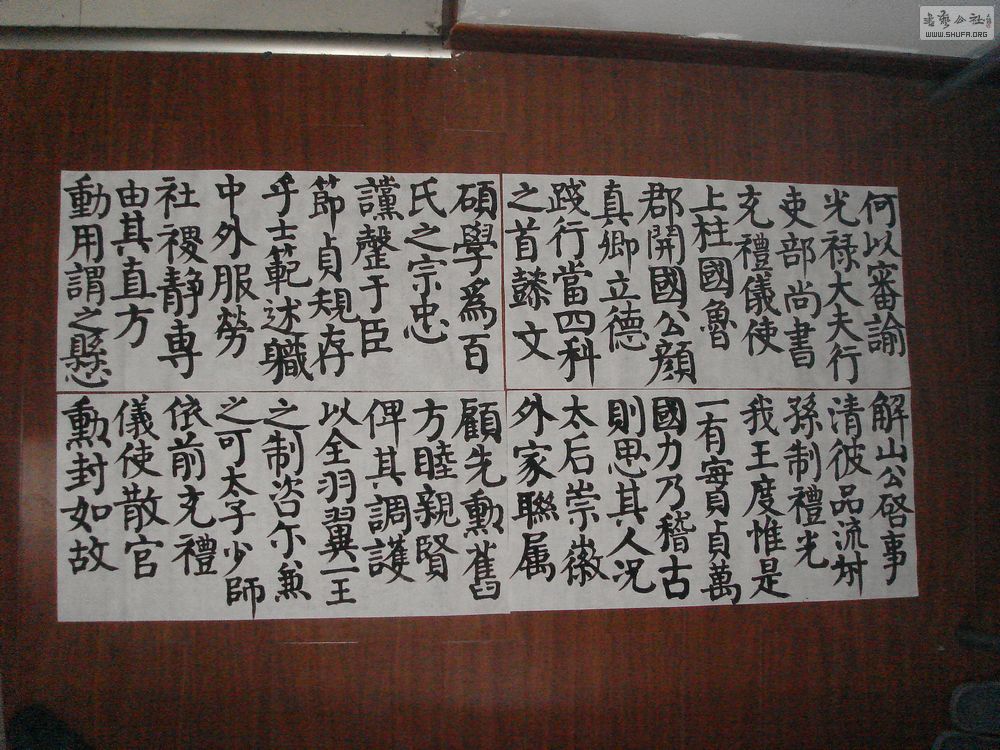 何以審諭
光禄大夫行
吏部尚書
充禮儀使
上柱國魯
郡開國公顔
真卿立德
踐行當四科
之首懿文
碩學爲百
氏之宗忠
讜罄于臣
節貞規存
乎士範述職
中外服勞
社稷静専
由其直方
動用謂之懸
解山公啓事
清彼品流叔
孫制禮光
我王度惟是
一有實貞萬
國力乃稽古
則思其人况
太后崇徽
外家聯属
顧先勲舊
方睦親賢
俾其調護
以全羽翼一王
之制咨尓兼
之可太子少師
依前充禮
儀使散官
勲封如故
書藝公社
WWW.SHUFA.ORG